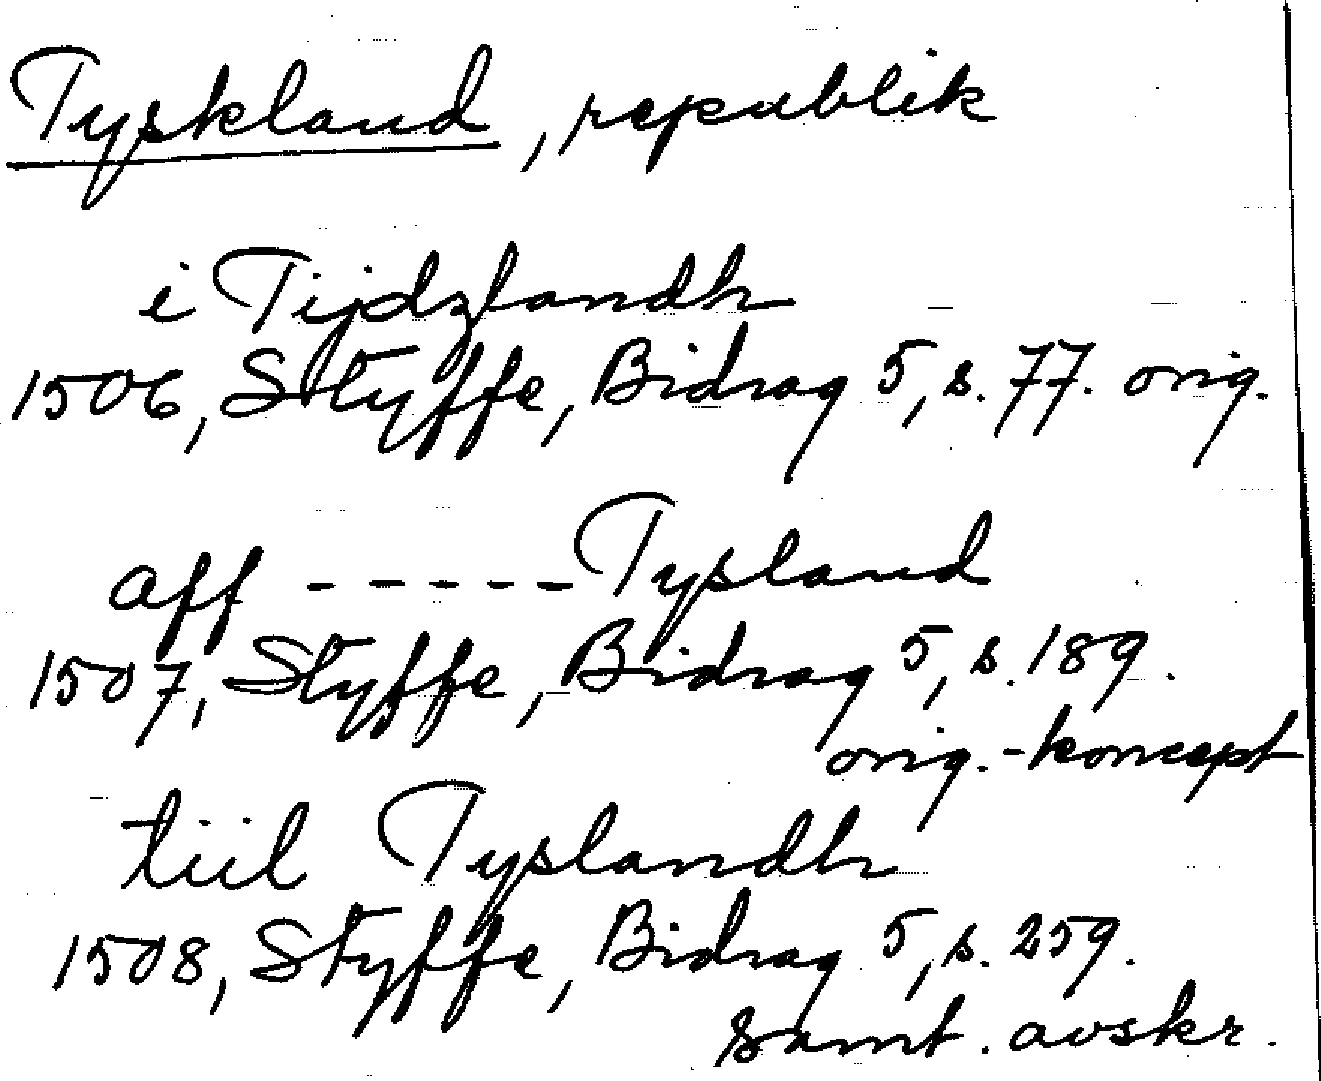 Tyskland, republik
i Tijdzlandh
1506, Styffe, Bidrag 5, s. 77. orig.
aff ----- Tysland
1507, Styffe, Bidrag 5, s. 189.
orig.-koncept
tiil Tyslandh
1508, Styffe, Bidrag 5, s. 259.
samt. avskr.